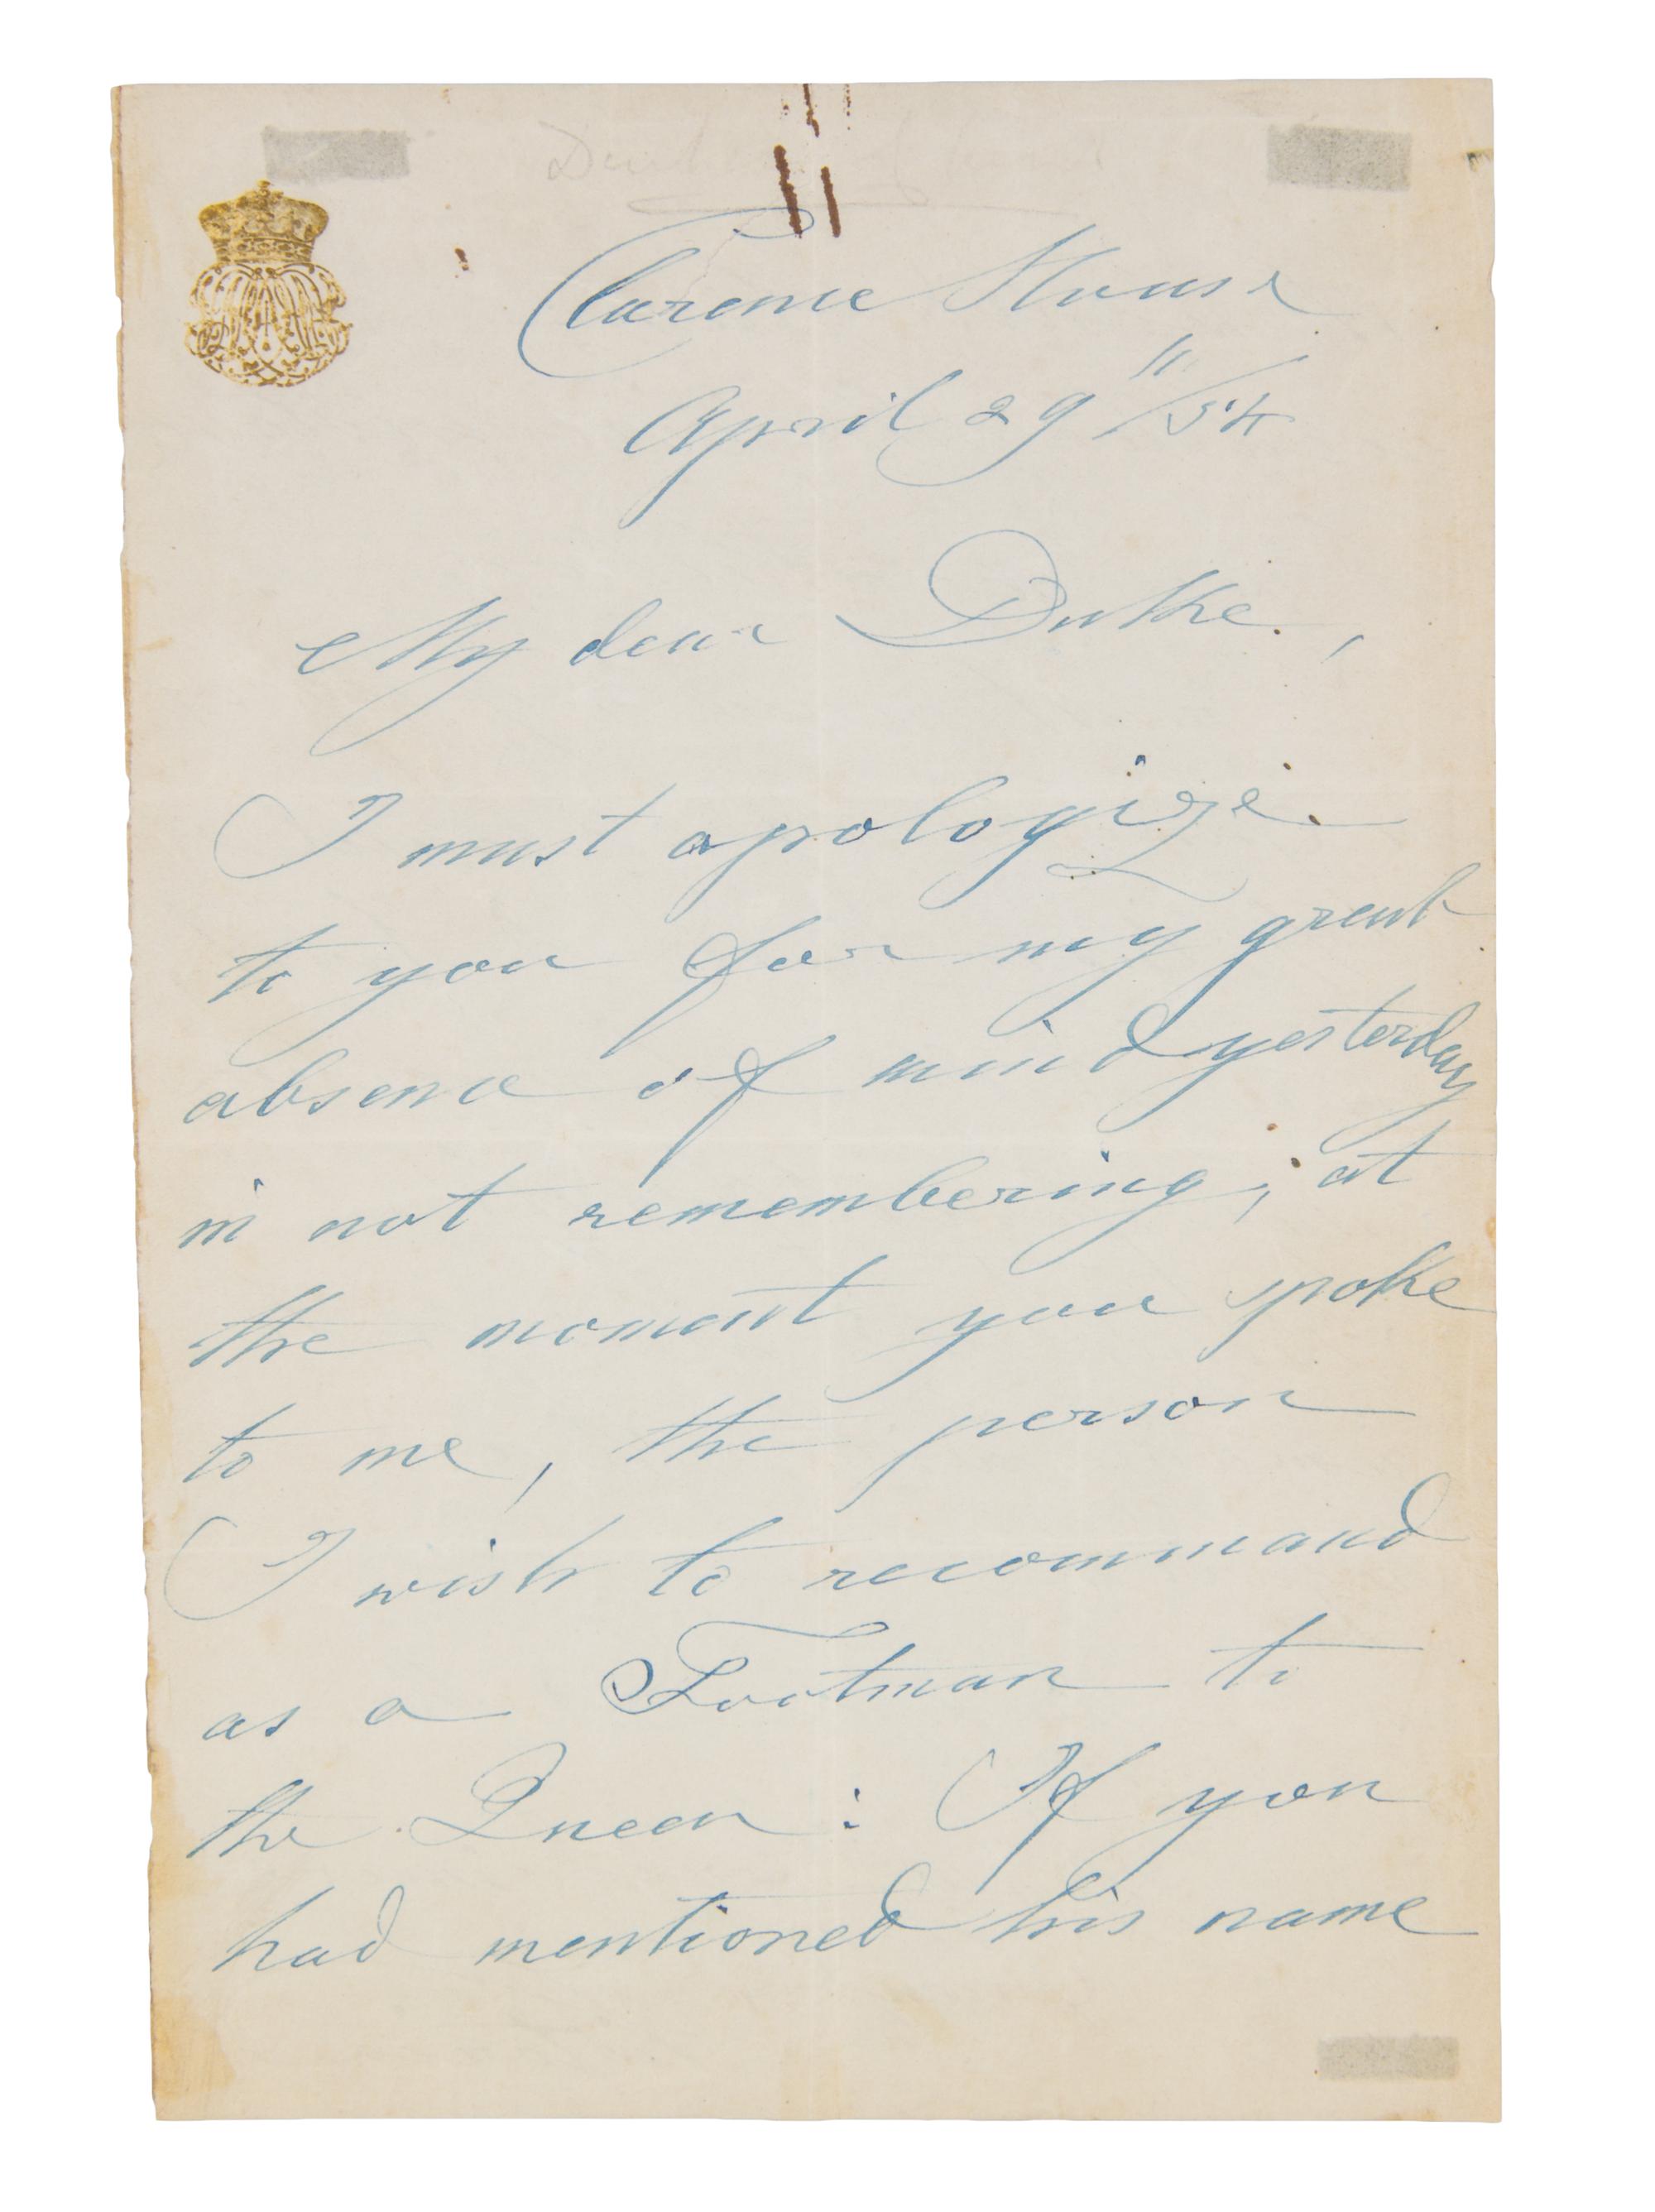 Clarence House
April 29"/54
My dear Duke,
I must apologize
to you for my great
absence of mind yesterday
in not remembering, at
the moment you spoke
to me, the person
I wish to recommand
as a Footman to
the Queen: If you
had mentioned his name